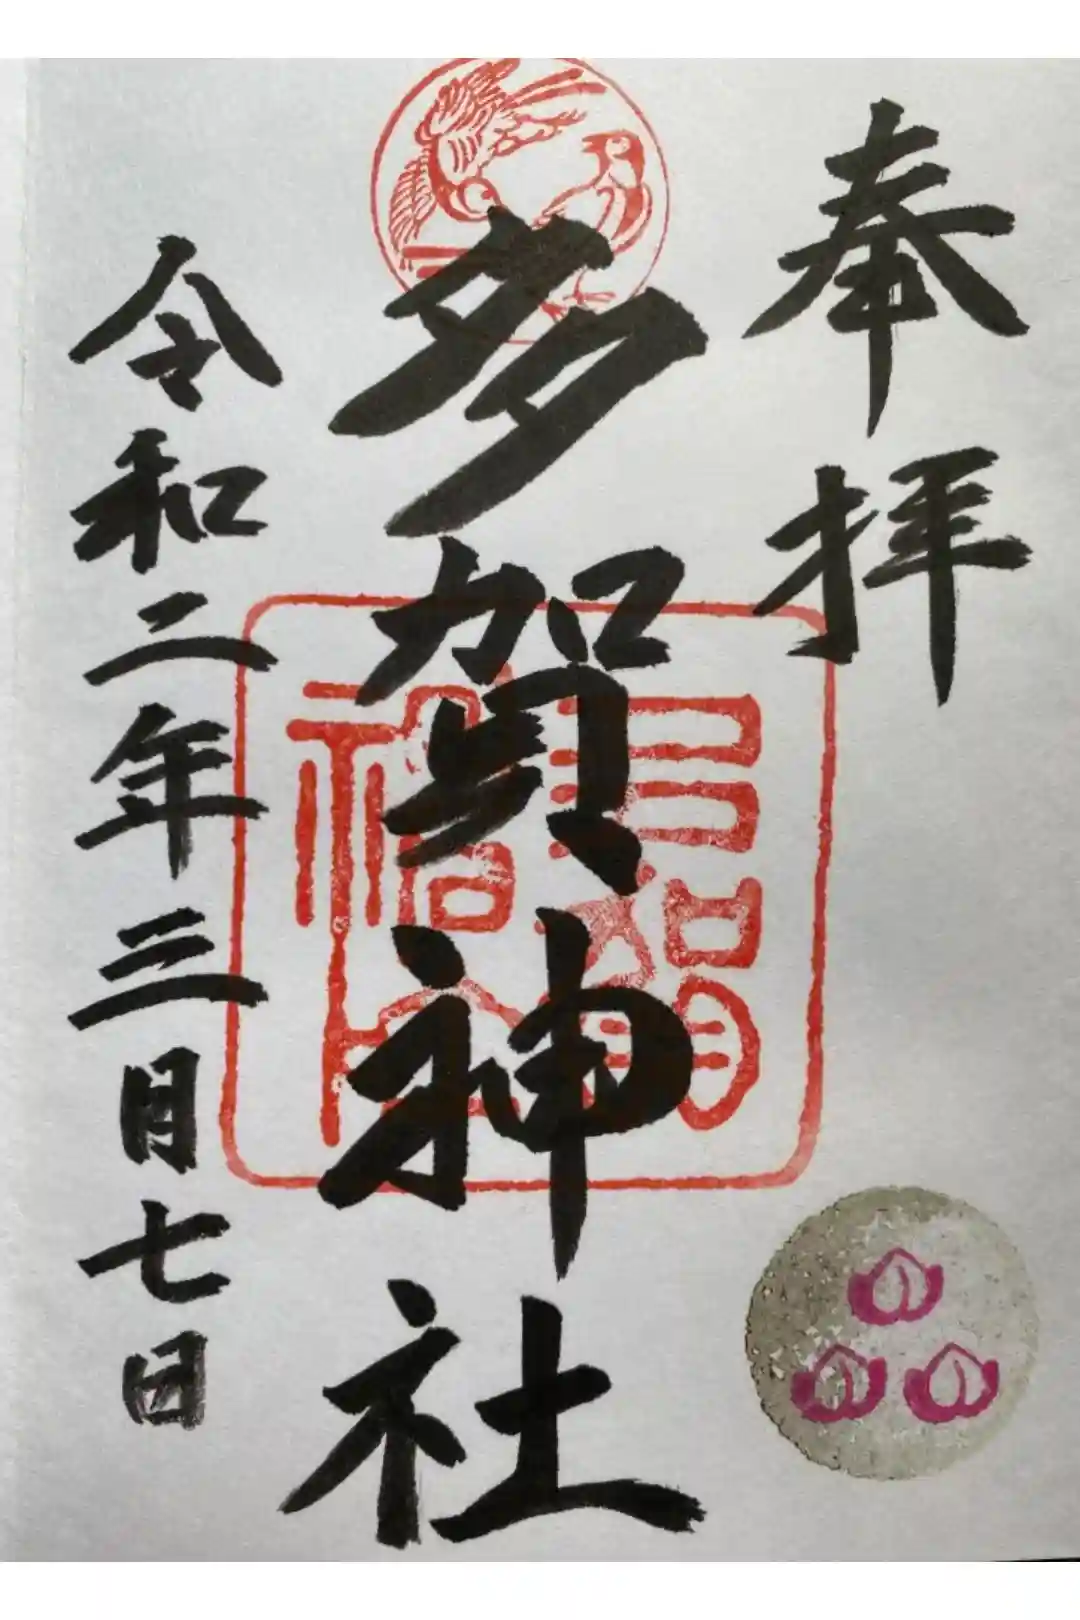 奉拝
多賀神社
令和二年三月七日